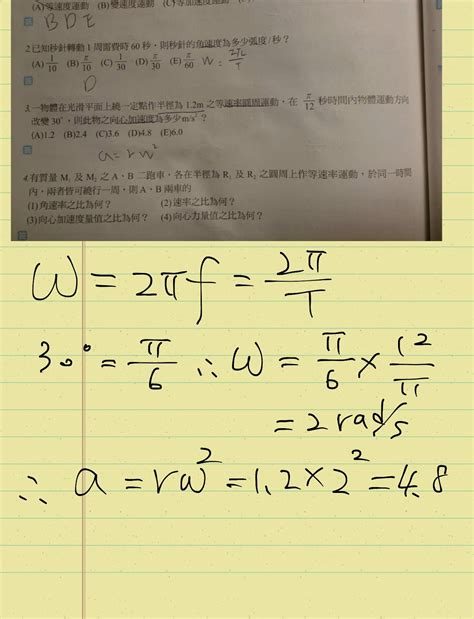 (A)等速度運動 (B)變速度運動 (C)等加速度運動
BDE
2.已知秒針轉動 1 周需費時 60 秒，則秒針的角速度為多少弧度/秒？
(A) 1/10 (B) π/10 (C) 1/30 (D) π/30 (E) π/60 W = 2π/T
D
3.一物體在光滑平面上繞一定點作半徑為 1.2m 之等速率圓周運動，在 π/12 秒時間內物體運動方向
改變 30°，則此物之向心加速度為多少 m/s²？
(A)1.2 (B)2.4 (C)3.6 (D)4.8 (E)6.0
a = rw²
4.有質量 M₁ 及 M₂ 之 A、B 二跑車，各在半徑為 R₁ 及 R₂ 之圓周上作等速率運動，於同一時間
內，兩者皆可繞行一周，則 A、B 兩車的
(1)角速率之比為何？ (2)速率之比為何？
(3)向心加速度量值之比為何？ (4)向心力量值之比為何？
W = 2πf = 2π/T
30° = π/6 ∴ W = π/6 × 12/π
= 2 rad/s
∴ a = rw² = 1.2×2² = 4.8